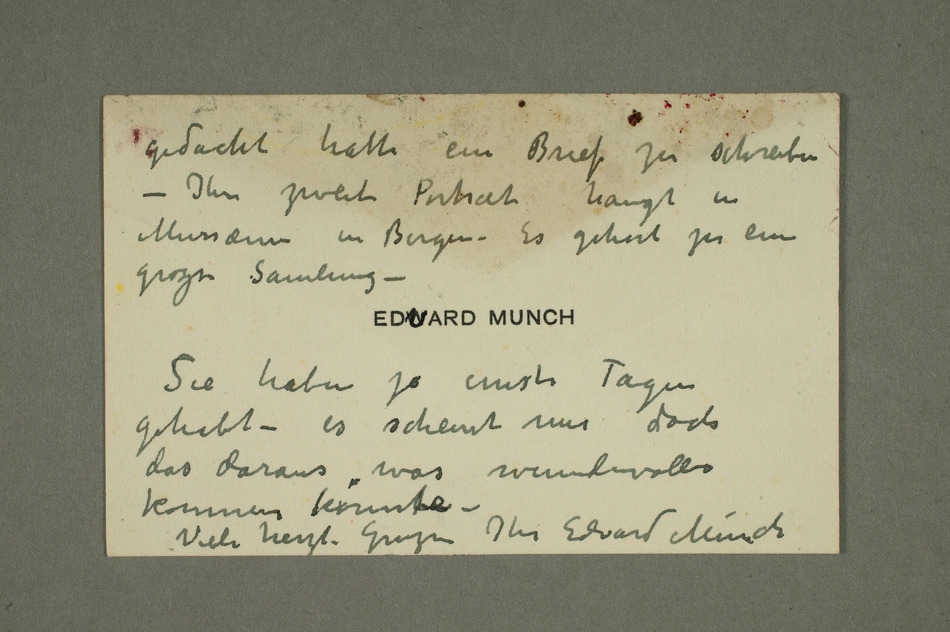 gedacht hatte ein Brief zu schreiben
– Ihr zweite Portræt hängt in
Mussæum in Bergen – Es gehört zu eine
grozse Samlung –
EDVARD MUNCH
Sie haben ja ernste Tagen
gehabt – es scheint mir doch
das daraus was wundervolles
kommen könnte –
Viele herzl. Gruzse Ihr Edvard Munch